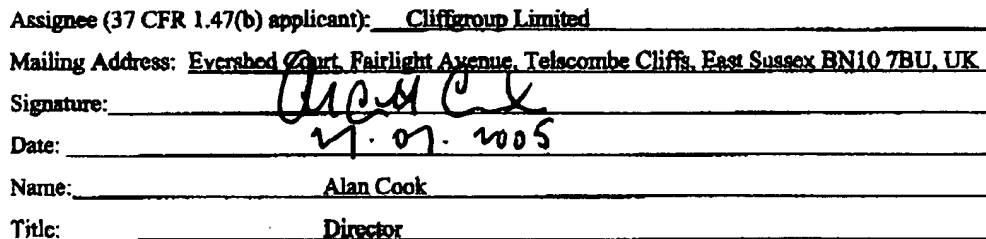 Assignee (37 CFR 1.47(b) applicant): Cliffgroup Limited
Mailing Address: Evershed Court, Fairlight Avenue, Telscombe Cliffs, East Sussex BN10 7BU, UK
Signature:
Date: 2005
Name: Alan Cook
Title: Director